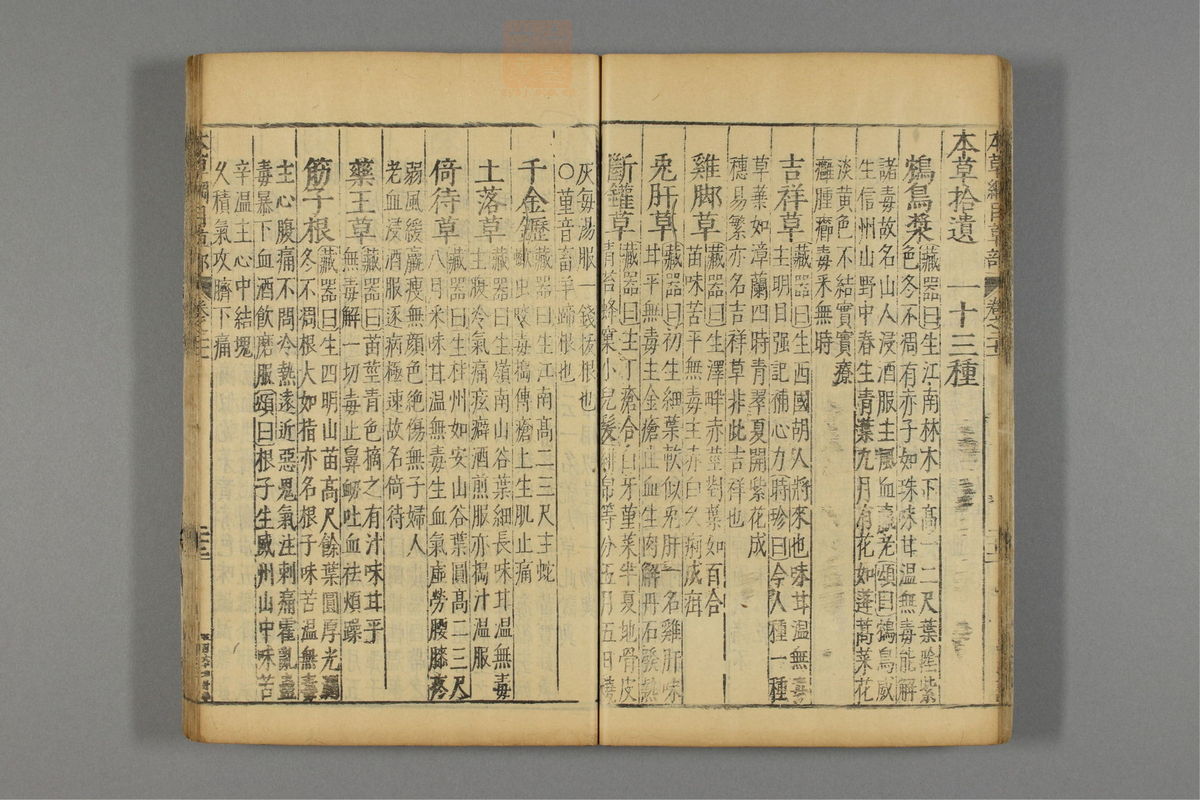 本草拾遺 一十三種
鴆鳥漿 藏器曰生江南林木下高一二尺葉陰紫
色冬不凋有赤子如珠味甘溫無毒能解
諸毒故名山人浸酒服主風血羸老頌曰鴆鳥威
生信州山野中春生青葉九月有花如蓬蒿菜花
淡黃色不結實實療
癰腫癤毒采無時
吉祥草 藏器曰生西國胡人將來也味甘溫無毒
主明目強記補心力時珍曰今人種一種
草葉如漳蘭四時青翠夏開紫花成
穗易繁亦名吉祥草非此吉祥也
雞脚草 藏器曰生澤畔赤莖對葉如百合
苗味苦平無毒主赤白久痢成疳
兎肝草 藏器曰初生細葉軟似兎肝一名雞肝味
甘平無毒主金瘡止血生肉解丹石發熱
斷鑵草 藏器曰主丁瘡合白牙堇菜半夏地骨皮
青苔蜂窠小兒髮緋帛等分五月五日燒
灰每湯服一錢拔根也
○堇音畜羊蹄根也
千金𧄤 藏器曰生江南高二三尺主蛇
蠍蟲咬毒搗傅瘡上生肌止痛
土落草 藏器曰生嶺南山谷葉細長味甘溫無毒
主腹冷氣痛痃癖酒煎服亦搗汁溫服
倚待草 藏器曰生桂州如安山谷葉圓高二三尺
八月采味甘溫無毒主血氣虛勞腰膝疼
弱風緩羸瘦無顏色絕傷無子婦人
老血浸酒服逐病極速故名倚待
藥王草 藏器曰苗莖青色摘之有汁味甘平
無毒解一切毒止鼻衂吐血祛煩躁
筋子根 藏器曰生四明山苗高尺餘葉圓厚光潤
冬不凋根大如指亦名根子味苦溫無毒
主心腹痛不問冷熱遠近惡鬼氣注刺痛霍亂蠱
毒暴下血酒飲磨服頌曰根子生威州山中味苦
辛溫主心中結塊
久積氣攻臍下痛